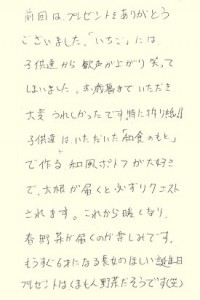 前回は、プレゼントをありがとう
ございました。「いちご」には
子供達から歓声が上がり笑って
しまいました。お歳暮まで いただき
大変 うれしかったです。特に折り紙!!
子供達は、いただいた「和食のもと」
で作る 和風ポトフが大好き
で、大根が届くと必ずリクエスト
されます。これから暖くなり、
春野菜が届くのが楽しみです。
もうすぐ6才になる長女のほしい誕生日
プレゼントは「くまもん野菜だそうです(笑)